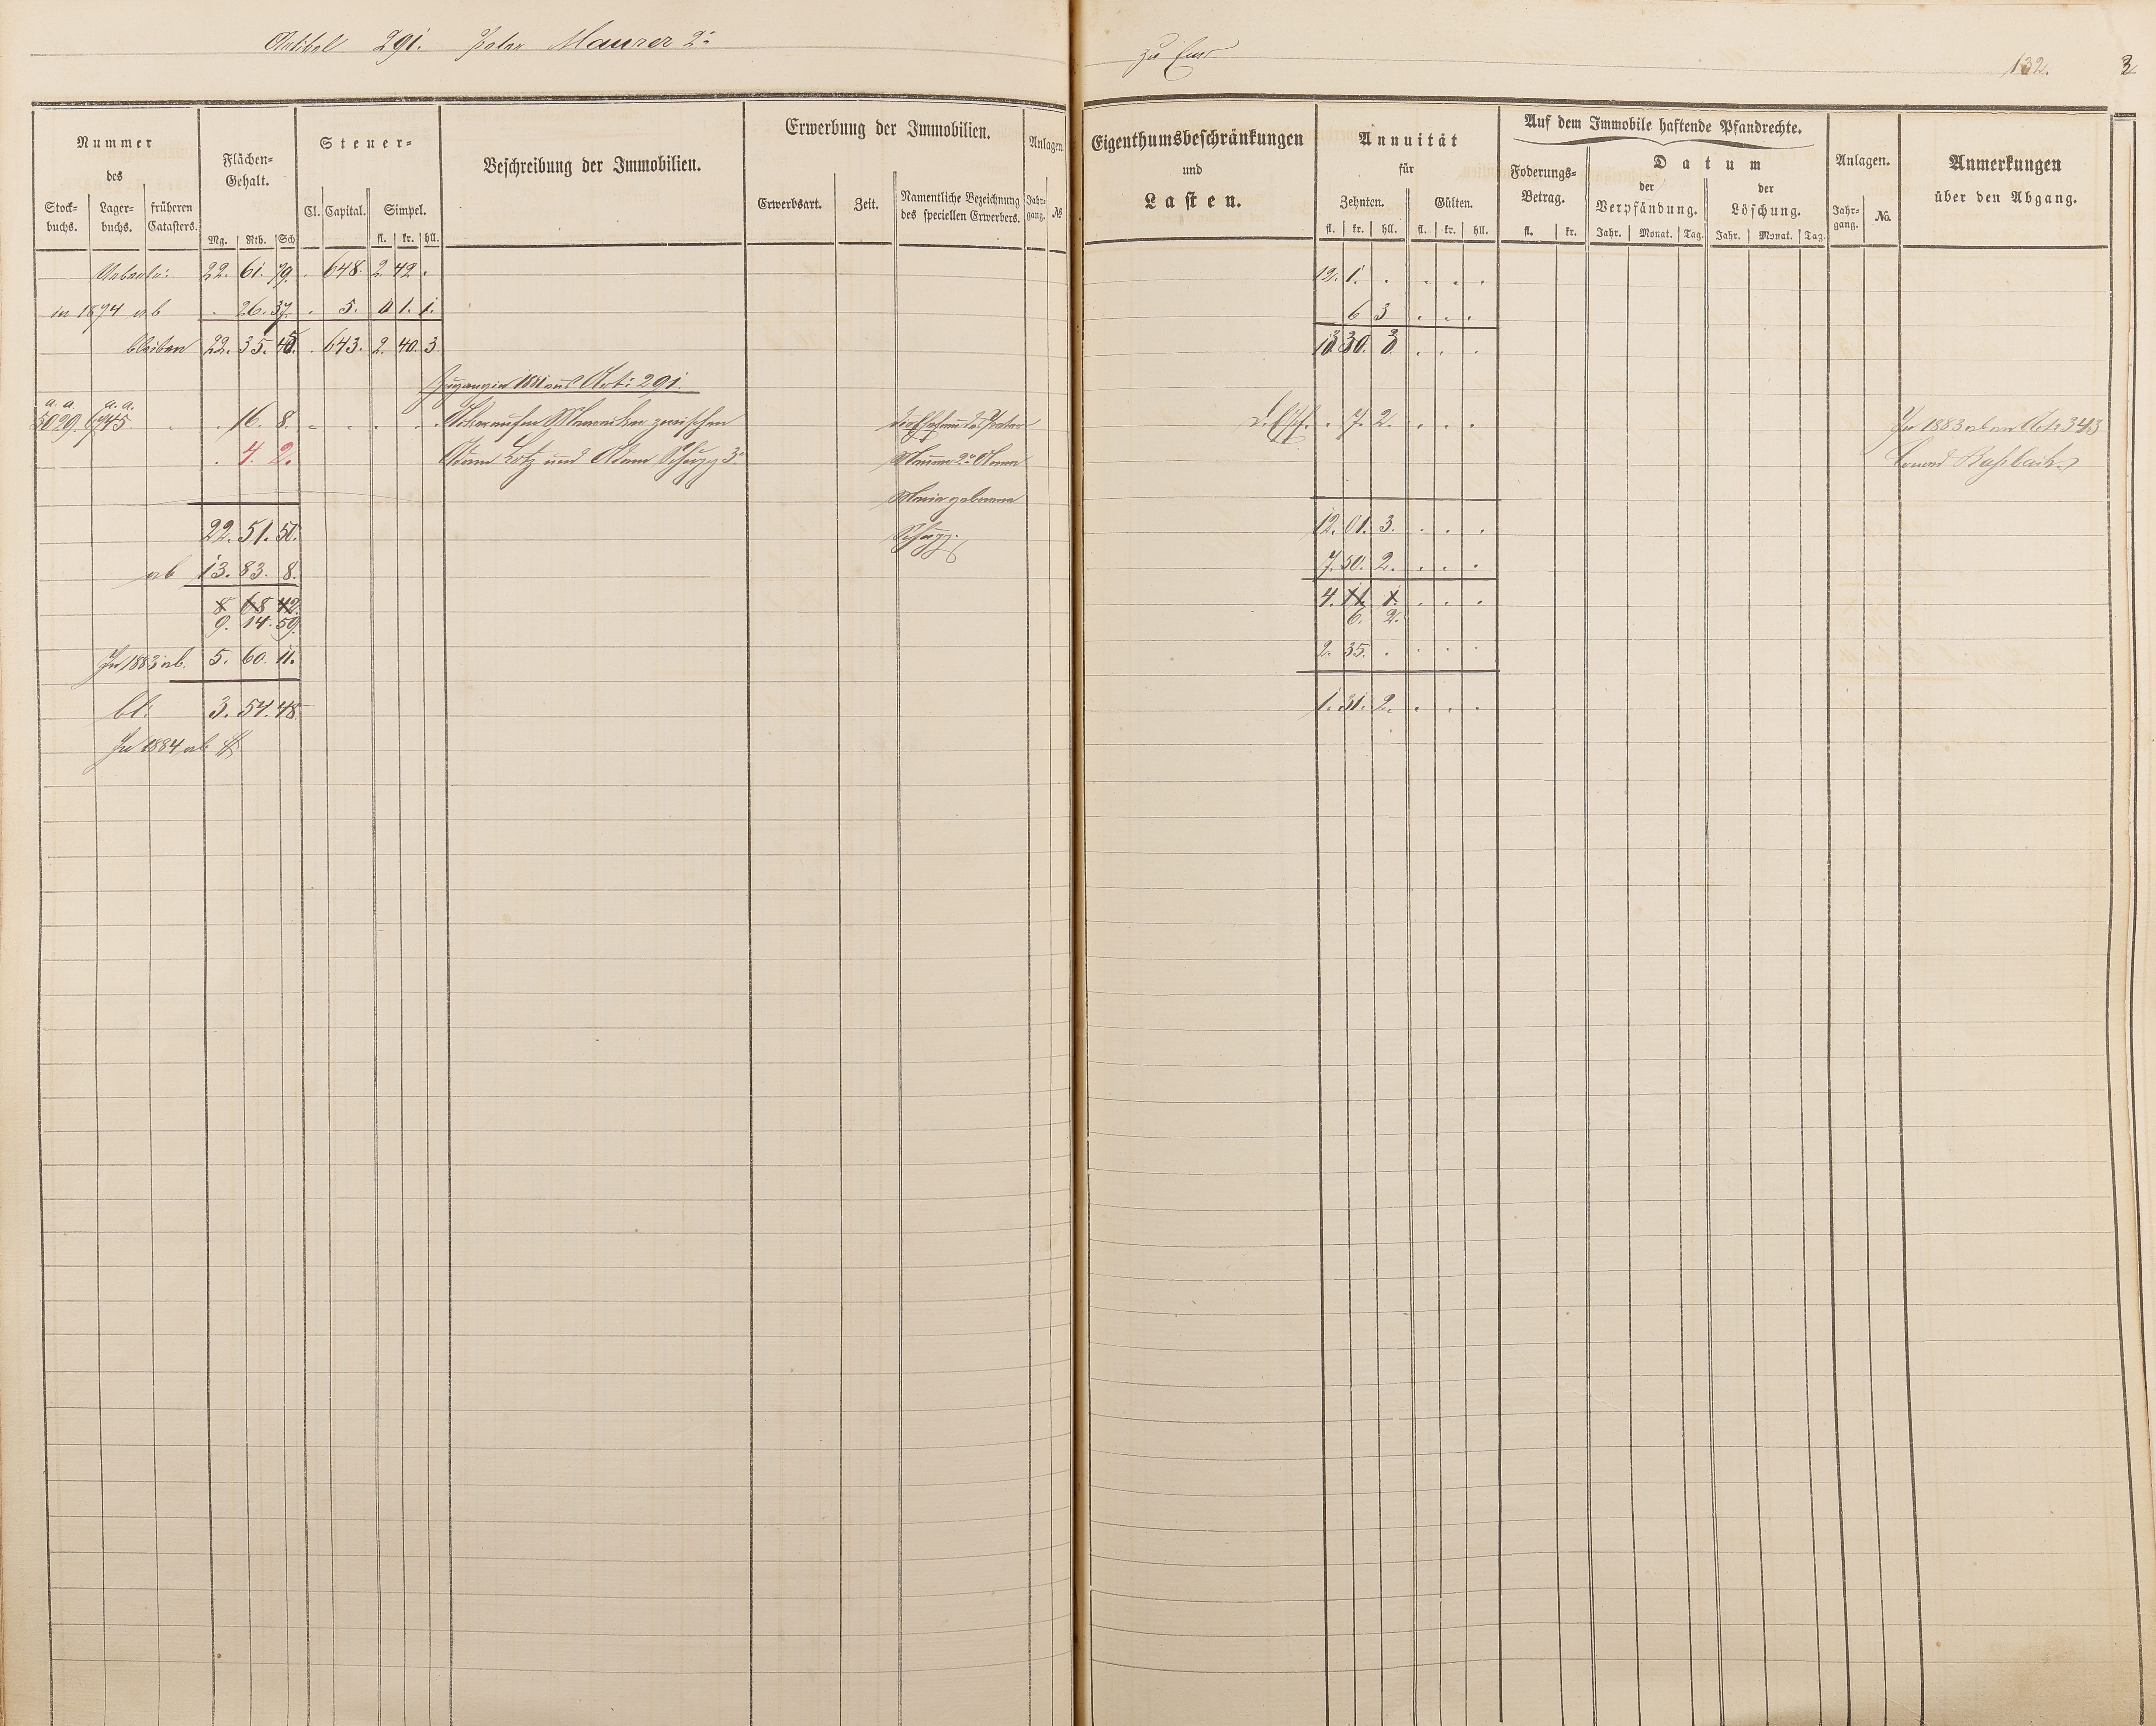 Artikel 291. Peter Maurer 2r
zu Ems
132. 2
Nummer des
Stock-buchs. Lager-buchs. früheren Catasters.
Flächen-Gehalt.
Mg. Rth. Sch
Steuer-
Cl. Capital. Simpel.
fl. kr. hll.
Beschreibung der Immobilien.
Erwerbung der Immobilien.
Erwerbsart. Zeit. Namentliche Bezeichnung des speciellen Erwerbers.
Anlagen.
Jahr-gang. №
Eigenthumsbeschränkungen und Lasten.
Annuität für
Zehnten. Gülten.
fl. kr. hll. fl. kr. hll.
Auf dem Immobile haftende Pfandrechte.
Foderungs-Betrag.
fl. kr.
Datum
der Verpfändung. der Löschung.
Jahr. Monat. Tag. Jahr. Monat. Tag.
Anlagen.
Jahr-gang. No.
Anmerkungen über den Abgang.
22. 61. 79. . 648. 2. 42 . 12. 1. . . . .
in 1874 ab . 26. 37. . 5. 0 1. 1. 6 3 . . .
bleiben 22. 35. 42. . 643. 2. 40. 3. 30. . . .
Zugang in 1881 aus Art: 291.
a. a. a. a.
5029. 6745. . . 16. 8. . . . . . zwischen . 7. 2. . . . In 1883 ab an Art. 343
. 4. 2. Adam Lotz und Adam Schupp 3r Maurer 2r Anna
Maria geborene
22. 51. 50. Schupp. 12. 01. 3. . . .
ab 13. 83. 8. 7. 50. 2. . . .
8 68 42. 4. 11. 1. . . .
9. 14. 59. 6. 2.
In 1883 ab. 5. 60. 11. 2. 35. . . . .
bl: 3. 54. 48. 1. 31. 2. . . .
In 1884 ab